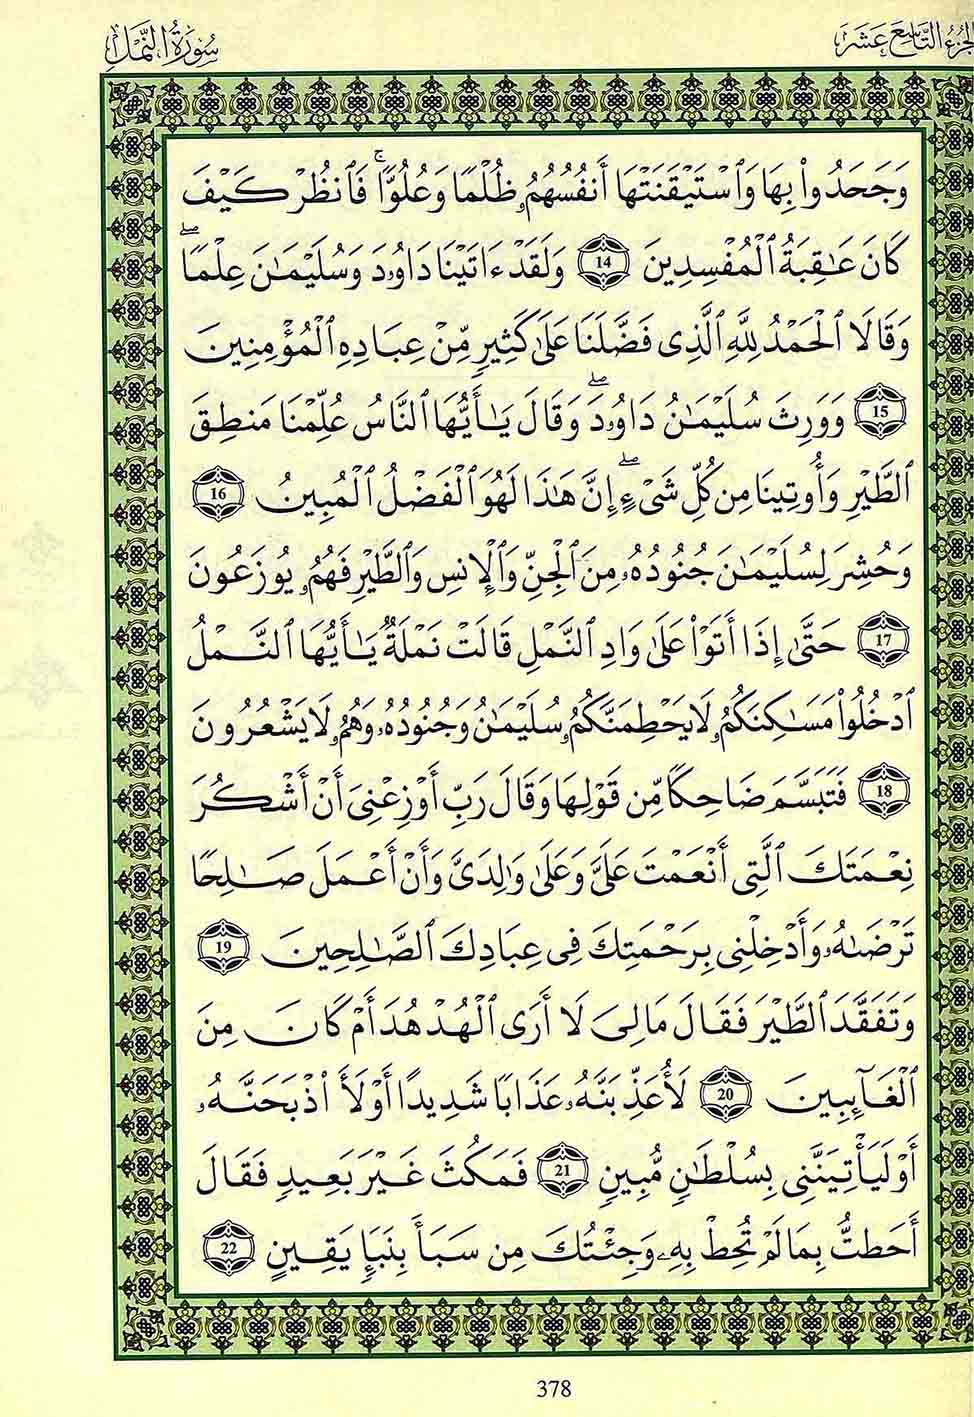 الجزء التاسع عشر
سورة النمل
وَجَحَدُوا۟ بِهَا وَٱسْتَيْقَنَتْهَا أَنفُسُهُمُۥ ظُلْمًا وَعُلُوًّا ۚ فَٱنظُرْ كَيْفَ
كَانَ عَـٰقِبَةُ ٱلْمُفْسِدِينَ 14 وَلَقَدْ ءَاتَيْنَا دَاوُۥدَ وَسُلَيْمَـٰنَ عِلْمًا ۖ
وَقَالَا ٱلْحَمْدُ لِلَّهِ ٱلَّذِى فَضَّلَنَا عَلَىٰ كَثِيرٍ مِّنْ عِبَادِهِ ٱلْمُؤْمِنِينَ
15 وَوَرِثَ سُلَيْمَـٰنُ دَاوُۥدَ ۖ وَقَالَ يَـٰٓأَيُّهَا ٱلنَّاسُ عُلِّمْنَا مَنطِقَ
ٱلطَّيْرِ وَأُوتِينَا مِن كُلِّ شَىْءٍ ۖ إِنَّ هَـٰذَا لَهُوَ ٱلْفَضْلُ ٱلْمُبِينُ 16
وَحُشِرَ لِسُلَيْمَـٰنَ جُنُودُهُۥ مِنَ ٱلْجِنِّ وَٱلْإِنسِ وَٱلطَّيْرِ فَهُمُۥ يُوزَعُونَ
17 حَتَّىٰٓ إِذَآ أَتَوْا۟ عَلَىٰ وَادِ ٱلنَّمْلِ قَالَتْ نَمْلَةٌ يَـٰٓأَيُّهَا ٱلنَّمْلُ
ٱدْخُلُوا۟ مَسَـٰكِنَكُمُۥ لَا يَحْطِمَنَّكُمُۥ سُلَيْمَـٰنُ وَجُنُودُهُۥ وَهُمُۥ لَا يَشْعُرُونَ
18 فَتَبَسَّمَ ضَاحِكًا مِّن قَوْلِهَا وَقَالَ رَبِّ أَوْزِعْنِىَ أَنْ أَشْكُرَ
نِعْمَتَكَ ٱلَّتِىٓ أَنْعَمْتَ عَلَىَّ وَعَلَىٰ وَٰلِدَىَّ وَأَنْ أَعْمَلَ صَـٰلِحًا
تَرْضَىٰهُۥ وَأَدْخِلْنِى بِرَحْمَتِكَ فِى عِبَادِكَ ٱلصَّـٰلِحِينَ 19
وَتَفَقَّدَ ٱلطَّيْرَ فَقَالَ مَا لِىَ لَآ أَرَى ٱلْهُدْهُدَ أَمْ كَانَ مِنَ
ٱلْغَآئِبِينَ 20 لَأُعَذِّبَنَّهُۥ عَذَابًا شَدِيدًا أَوْ لَأَا۟ذْبَحَنَّهُۥٓ
أَوْ لَيَأْتِيَنَّنِى بِسُلْطَـٰنٍ مُّبِينٍ 21 فَمَكُثَ غَيْرَ بَعِيدٍ فَقَالَ
أَحَطتُّ بِمَا لَمْ تُحِطْ بِهِۦ وَجِئْتُكَ مِن سَبَأَ بِنَبَإٍ يَقِينٍ 22
378